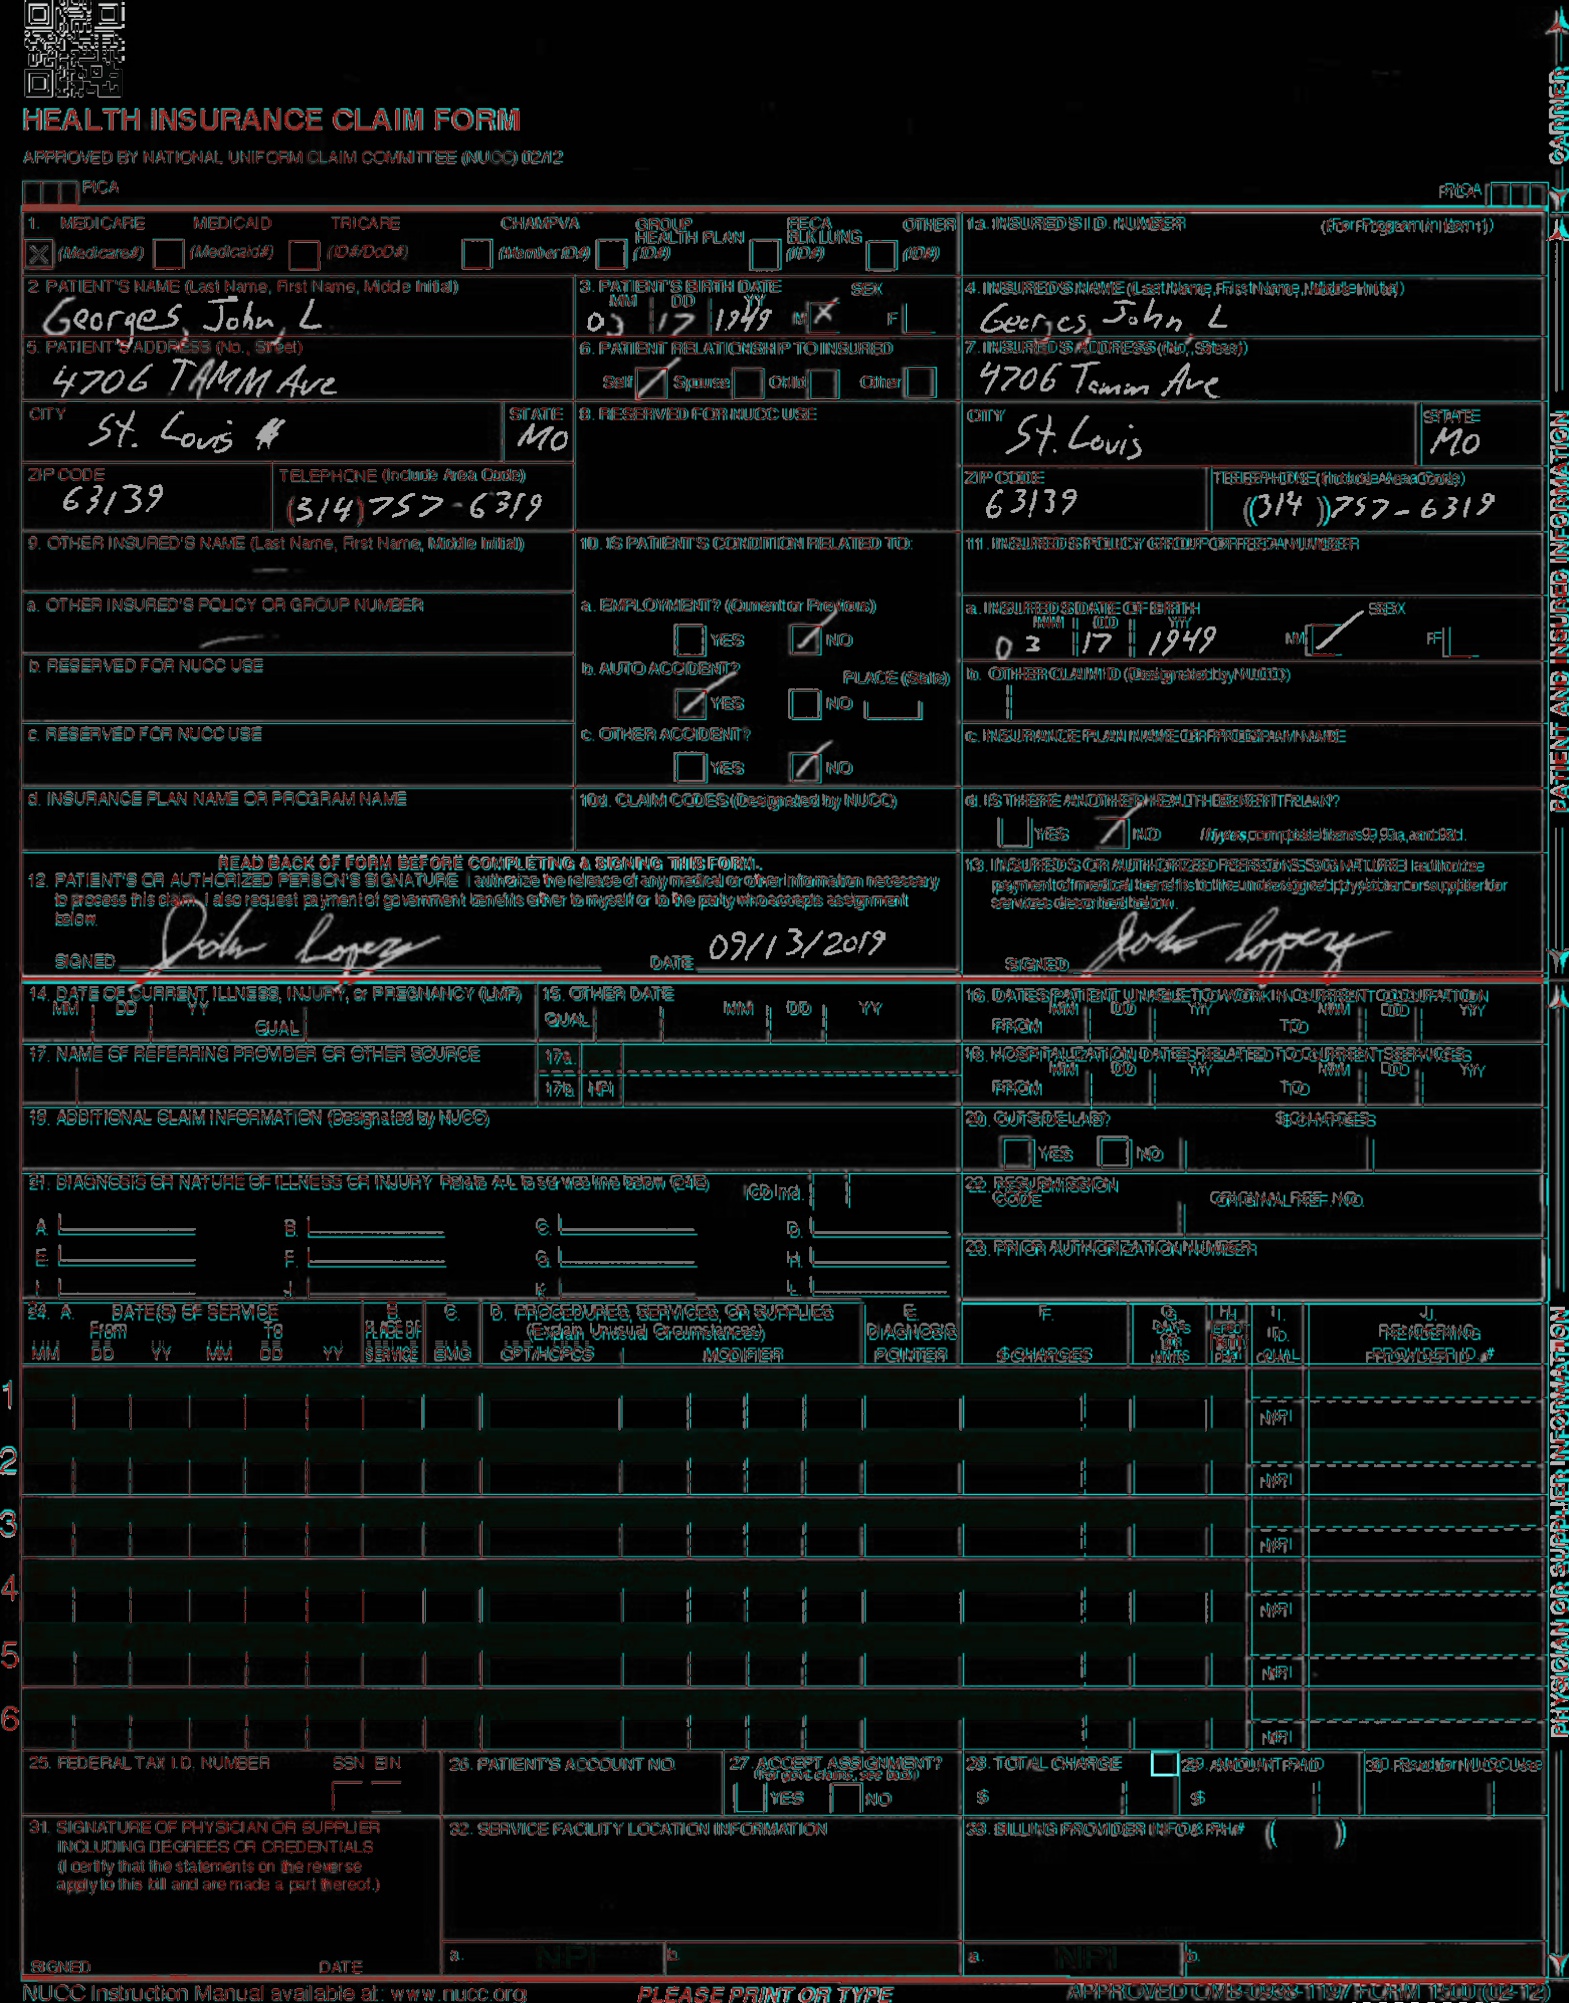 HEALTH INSURANCE CLAIM FORM
APPROVED BY NATIONAL UNIFORM CLAIM COMMITTEE (NUCC) 02/12
PICA
PICA
CARRIER
1. MEDICARE MEDICAID TRICARE CHAMPVA GROUP HEALTH PLAN FECA BLK LUNG OTHER
X (Medicare#) (Medicaid#) (ID#/DoD#) (Member ID#) (ID#) (ID#) (ID#)
1a. INSURED'S I.D. NUMBER (For Program in Item 1)
2. PATIENT'S NAME (Last Name, First Name, Middle Initial)
Georges, John, L
3. PATIENT'S BIRTH DATE SEX
MM DD YY
03 17 1949 M X F
4. INSURED'S NAME (Last Name, First Name, Middle Initial)
Georges, John, L
5. PATIENT'S ADDRESS (No., Street)
4706 TAMM Ave
6. PATIENT RELATIONSHIP TO INSURED
Self Spouse Child Other
7. INSURED'S ADDRESS (No., Street)
4706 Tamm Ave
CITY
St. Louis
STATE
MO
8. RESERVED FOR NUCC USE
CITY
St. Louis
STATE
MO
ZIP CODE
63139
TELEPHONE (Include Area Code)
(314) 757-6319
ZIP CODE
63139
TELEPHONE (Include Area Code)
(314) 757-6319
9. OTHER INSURED'S NAME (Last Name, First Name, Middle Initial)
—
10. IS PATIENT'S CONDITION RELATED TO:
11. INSURED'S POLICY GROUP OR FECA NUMBER
a. OTHER INSURED'S POLICY OR GROUP NUMBER
—
a. EMPLOYMENT? (Current or Previous)
YES NO
a. INSURED'S DATE OF BIRTH SEX
MM DD YY
03 17 1949 M F
b. RESERVED FOR NUCC USE
b. AUTO ACCIDENT? PLACE (State)
YES NO
b. OTHER CLAIM ID (Designated by NUCC)
c. RESERVED FOR NUCC USE
c. OTHER ACCIDENT?
YES NO
c. INSURANCE PLAN NAME OR PROGRAM NAME
d. INSURANCE PLAN NAME OR PROGRAM NAME
10d. CLAIM CODES (Designated by NUCC)
d. IS THERE ANOTHER HEALTH BENEFIT PLAN?
YES NO If yes, complete items 9, 9a, and 9d.
PATIENT AND INSURED INFORMATION
READ BACK OF FORM BEFORE COMPLETING & SIGNING THIS FORM.
12. PATIENT'S OR AUTHORIZED PERSON'S SIGNATURE I authorize the release of any medical or other information necessary
to process this claim. I also request payment of government benefits either to myself or to the party who accepts assignment
below.
SIGNED John Lopez DATE 09/13/2019
13. INSURED'S OR AUTHORIZED PERSON'S SIGNATURE I authorize
payment of medical benefits to the undersigned physician or supplier for
services described below.
SIGNED John Lopez
14. DATE OF CURRENT ILLNESS, INJURY, or PREGNANCY (LMP)
MM DD YY
QUAL
15. OTHER DATE
QUAL MM DD YY
16. DATES PATIENT UNABLE TO WORK IN CURRENT OCCUPATION
MM DD YY MM DD YY
FROM TO
17. NAME OF REFERRING PROVIDER OR OTHER SOURCE
17a.
17b. NPI
18. HOSPITALIZATION DATES RELATED TO CURRENT SERVICES
MM DD YY MM DD YY
FROM TO
19. ADDITIONAL CLAIM INFORMATION (Designated by NUCC)
20. OUTSIDE LAB? $ CHARGES
YES NO
21. DIAGNOSIS OR NATURE OF ILLNESS OR INJURY Relate A-L to service line below (24E) ICD Ind.
A. B. C. D.
E. F. G. H.
I. J. K. L.
22. RESUBMISSION
CODE ORIGINAL REF. NO.
23. PRIOR AUTHORIZATION NUMBER
24. A. DATE(S) OF SERVICE B. C. D. PROCEDURES, SERVICES, OR SUPPLIES E. F. G. H. I. J.
From To PLACE OF (Explain Unusual Circumstances) DIAGNOSIS DAYS OR ID. RENDERING
MM DD YY MM DD YY SERVICE EMG CPT/HCPCS MODIFIER POINTER $ CHARGES UNITS QUAL. PROVIDER ID. #
1 NPI
2 NPI
3 NPI
4 NPI
5 NPI
6 NPI
25. FEDERAL TAX I.D. NUMBER SSN EIN
26. PATIENT'S ACCOUNT NO.
27. ACCEPT ASSIGNMENT?
(For govt. claims, see back)
YES NO
28. TOTAL CHARGE
$
29. AMOUNT PAID
$
30. Rsvd for NUCC Use
31. SIGNATURE OF PHYSICIAN OR SUPPLIER
INCLUDING DEGREES OR CREDENTIALS
(I certify that the statements on the reverse
apply to this bill and are made a part thereof.)
SIGNED DATE
32. SERVICE FACILITY LOCATION INFORMATION
a. NPI b.
33. BILLING PROVIDER INFO & PH# ( )
a. NPI b.
PHYSICIAN OR SUPPLIER INFORMATION
NUCC Instruction Manual available at: www.nucc.org
PLEASE PRINT OR TYPE
APPROVED OMB-0938-1197 FORM 1500 (02-12)